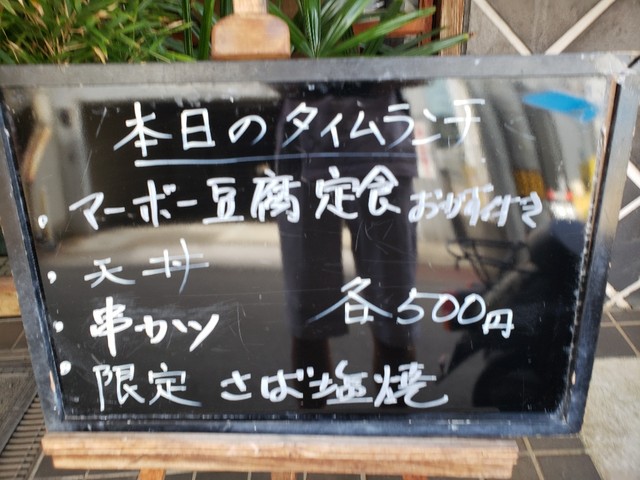 本日のタイムランチ
・マーボー豆腐定食 おかず付き
・天丼
・串かツ 各500円
・限定 さば塩焼